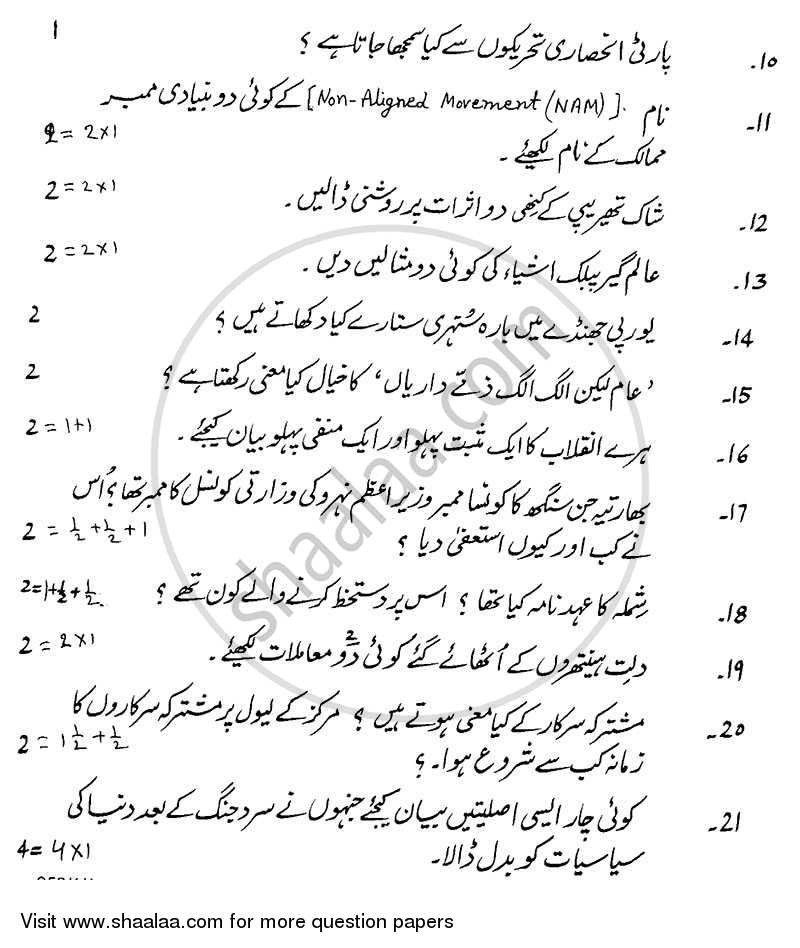 1
10- پارٹی انحصاری تحریکوں سے کیا سمجھا جاتا ہے ؟
11- نام [Non-Aligned Movement (NAM)] کے کوئی دو بنیادی ممبر
2 = 2×1 ممالک کے نام لکھئے ۔
12- شاک تھیریپی کے کنھی دو اثرات پر روشنی ڈالیں ۔ 2 = 2×1
13- عالم گیر پبلک اشیاء کی کوئی دو مثالیں دیں ۔ 2 = 2×1
14- یورپی جھنڈے میں بارہ سُنہری ستارے کیا دکھاتے ہیں ؟ 2
15- ’عام لیکن الگ الگ ذمّے داریاں‘ کا خیال کیا معنی رکھتا ہے ؟ 2
16- ہرے انقلاب کا ایک مثبت پہلو اور ایک منفی پہلو بیان کیجئے ۔ 2 = 1+1
17- بھارتیہ جن سنگھ کا کونسا ممبر وزیر اعظم نہرو کی وزارتی کونسل کا ممبر تھا ؟ اُس
نے کب اور کیوں استعفیٰ دیا ؟ 2 = ½ + ½ + 1
18- شِملہ کا عہد نامہ کیا تھا ؟ اس پر دستخط کرنے والے کون تھے ؟ 2=1+½+½
19- دلِت پینتھروں کے اُٹھائے گئے کوئی دو 2 معاملات لکھئے ۔ 2 = 2×1
20- مشترکہ سرکار کے کیا معنی ہوتے ہیں ؟ مرکز کے لیول پر مشترکہ سرکاروں کا
زمانہ کب سے شروع ہوا ۔ ؟ 2 = 1½ + ½
21- کوئی چار ایسی اصلیتیں بیان کیجئے جنہوں نے سرد جنگ کے بعد دنیا کی
سیاسیات کو بدل ڈالا ۔ 4 = 4×1
shaalaa.com
Visit www.shaalaa.com for more question papers